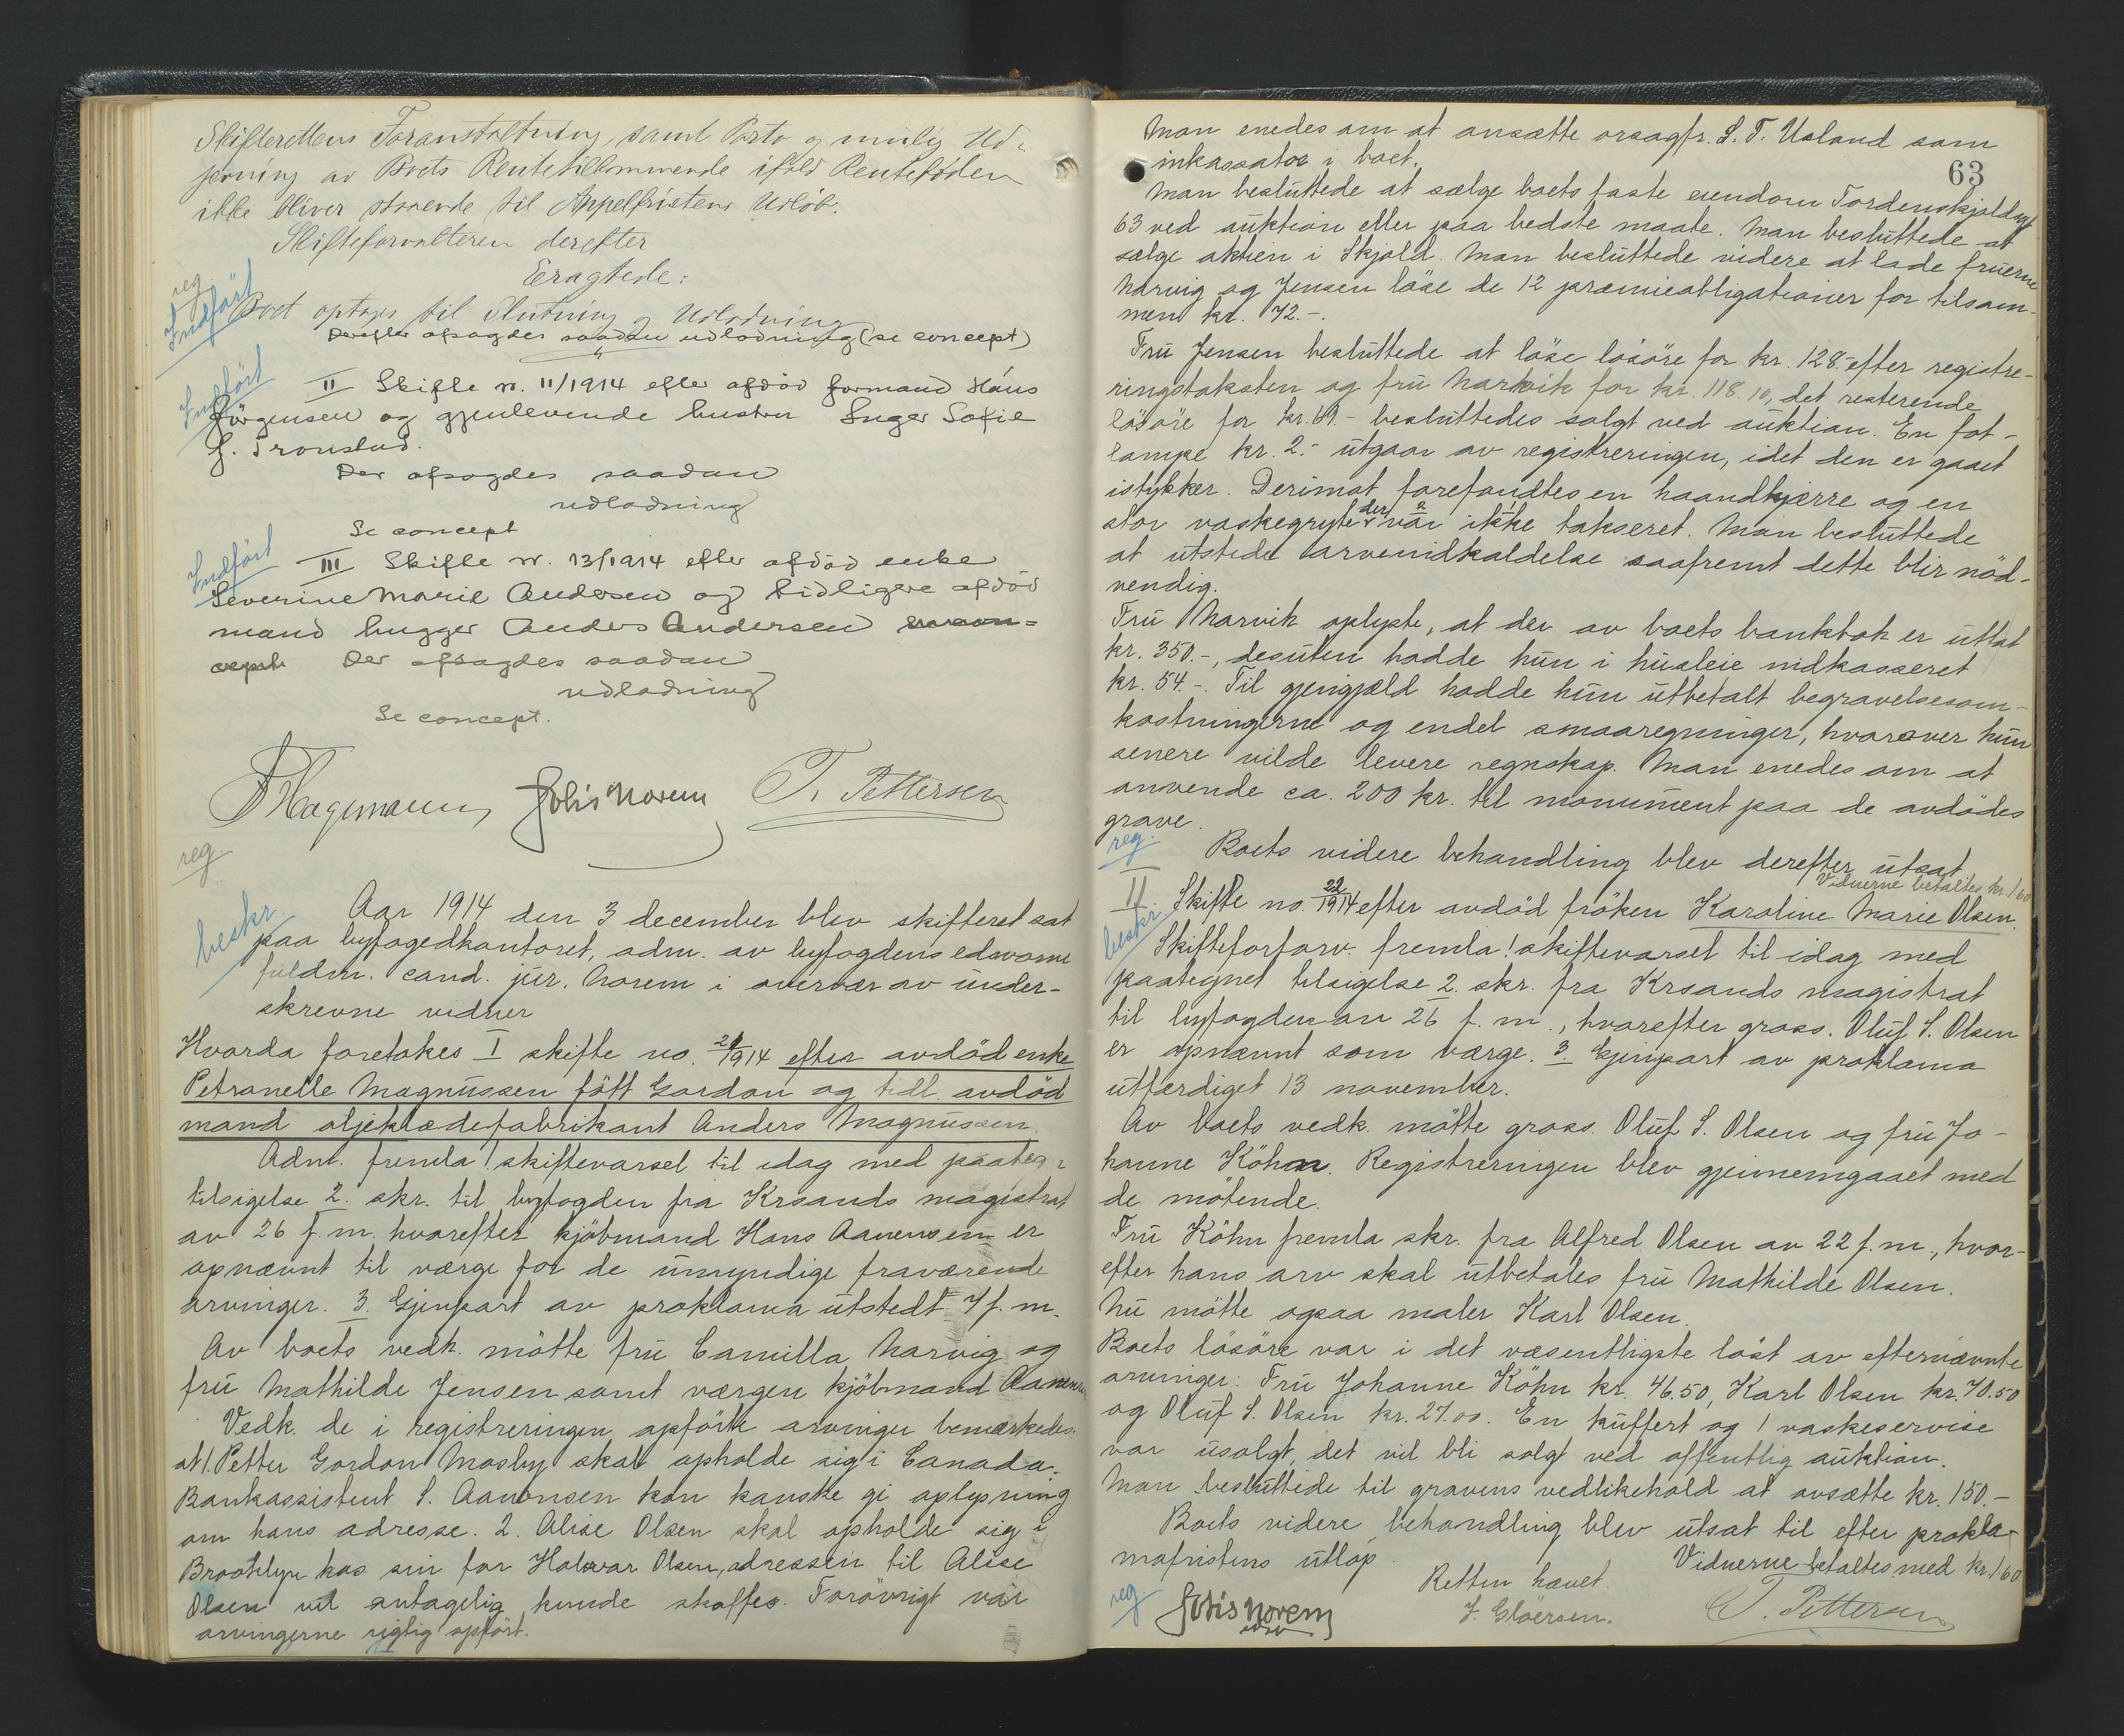 Skifterettens Foranstaltning, samt Porto og mulig Ud-
av Boets Rentetilkommende ifald Rentefoden
ikke bliver staaende til Appelfristens Udløb.
Skifteforvalteren derefter
Eragtede:
reg.
Indført
Boet optages til Slutning og Udlodning
Derefter afsagdes saadan udlodning (se concept)
Indført
II Skifte nr. 11/1914 efter afdød formand Hans
Jørgensen og gjenlevende hustru Inger Sofie
f. Tronstad.
Der afsagdes saadan
udlodning
Se concept
Indført
III Skifte nr. 13/1914 efter afdød enke
Severine Marie Andersen og tidligere afdød
mand hugger Anders Andersen
Der afsagdes saadan
udlodning
Se concept.
Hagemann Johs Norem T. Pettersen
reg.
beskr.
Aar 1914 den 3 december blev skifteret sat
paa byfogedkontoret, adm. av byfogdens edsvorne
fuldm. cand. jur. Norem i overvær av under-
skrevne vidner
Hvorda foretokes I skifte no. 21/1914 efter avdöd enke
Petronelle Magnussen fött Gordon og tidl. avdöd
mand oljeklædefabrikant Anders Magnussen.
Adm. fremla 1 skiftevarsel til idag med paateg.
tilsigelse 2. skr. til byfogden fra Krsands magistrat
av 26 f. m. hvorefter kjöbmand Hans Aanensen er
opnævnt til værge for de umyndige fraværende
arvinger. 3. Gjenpart av proklama utstedt 7 f. m.
Av boets vedk. mötte fru Camilla Narvig og
fru Mathilde Jensen samt værgen kjöbmand Aanensen
Vedk. de i registreringen opförte arvinger bemærkedes:
at 1. Petter Gordon Mosby skal opholde sig i Canada;
Bankassistent S. Aanonsen kan kanske gi oplysning
om hans adresse. 2. Alise Olsen skal opholde sig i
Brooklyn hos sin far Halvor Olsen, adressen til Alise
Olsen vil antagelig kunde skaffes. Forövrigt var
arvingerne rigtig opfört.
63
Man enedes om at ansætte orsagfr. S. T. Usland som
inkassator i boet.
Man besluttede at sælge boets faste eiendom Tordenskjoldsgt
63 ved auktion eller paa bedste maate. Man besluttede at
sælge aktien i Skjold. Man besluttede videre at lade fruerne
Narvig og Jensen löse de 12 præmieobligationer for tilsam-
men kr. 72.-.
Fru Jensen besluttede at löse lösöre for kr. 128.- efter registre-
ringstaksten og fru Narvik for kr. 118.10, det resterende
lösöre for kr. 69.- besluttedes solgt ved auktion. En fot-
lampe kr. 2.- utgaar av registreringen, idet den er gaaet
istykker. Derimot forefandtes en haandkjærre og en
stor vaskegryte der var ikke takseret. Man besluttede
at utstede arveindkaldelse saafremt dette blir nöd-
vendig.
Fru Narvik oplyste, at der av boets bankbok er uttat
kr. 350.-, desuten hadde hun i husleie indkasseret
kr. 54.-. Til gjengjæld hadde hun utbetalt begravelsesom-
kostningerne og endel smaaregninger, hvorover hun
senere vilde levere regnskap. Man enedes om at
anvende ca. 200 kr. til monument paa de avdödes
grave.
reg.
Boets videre behandling blev derefter utsat
Vidnerne betaltes kr. 1.60
II. Skifte no. 22/1914 efter avdöd fröken Karoline Marie Olsen.
beskr.
Skifteforforv. fremla 1 skiftevarsel til idag med
paategnet tilsigelse 2. skr. fra Krsands magistrat
til byfogden av 26 f. m., hvorefter gross. Oluf S. Olsen
er opnævnt som værge. 3. Gjenpart av proklama
utfærdiget 13 november.
Av boets vedk. mötte gross. Oluf S. Olsen og fru Jo-
hanne Köhn. Registreringen blev gjennemgaaet med
de mötende.
Fru Köhn fremla skr. fra Alfred Olsen av 22 f. m., hvor-
efter hans arv skal utbetales fru Mathilde Olsen.
Nu mötte ogsaa maler Karl Olsen.
Boets lösöre var i det væsentligste löst av efternævnte
arvinger: Fru Johanne Köhn kr. 46.50, Karl Olsen kr. 70.50
og Oluf S. Olsen kr. 27.00. En kuffert og 1 vaskeservise
var usolgt, det vil bli solgt ved offentlig auktion.
Man besluttede til gravens vedlikehold at avsætte kr. 150.-
Boets videre behandling blev utsat til efter prokla-
mafristens utløp.
Vidnerne betaltes med kr. 1.60
Retten hævet.
reg. Johs Norem J. Glöersen. T. Pettersen
edsv